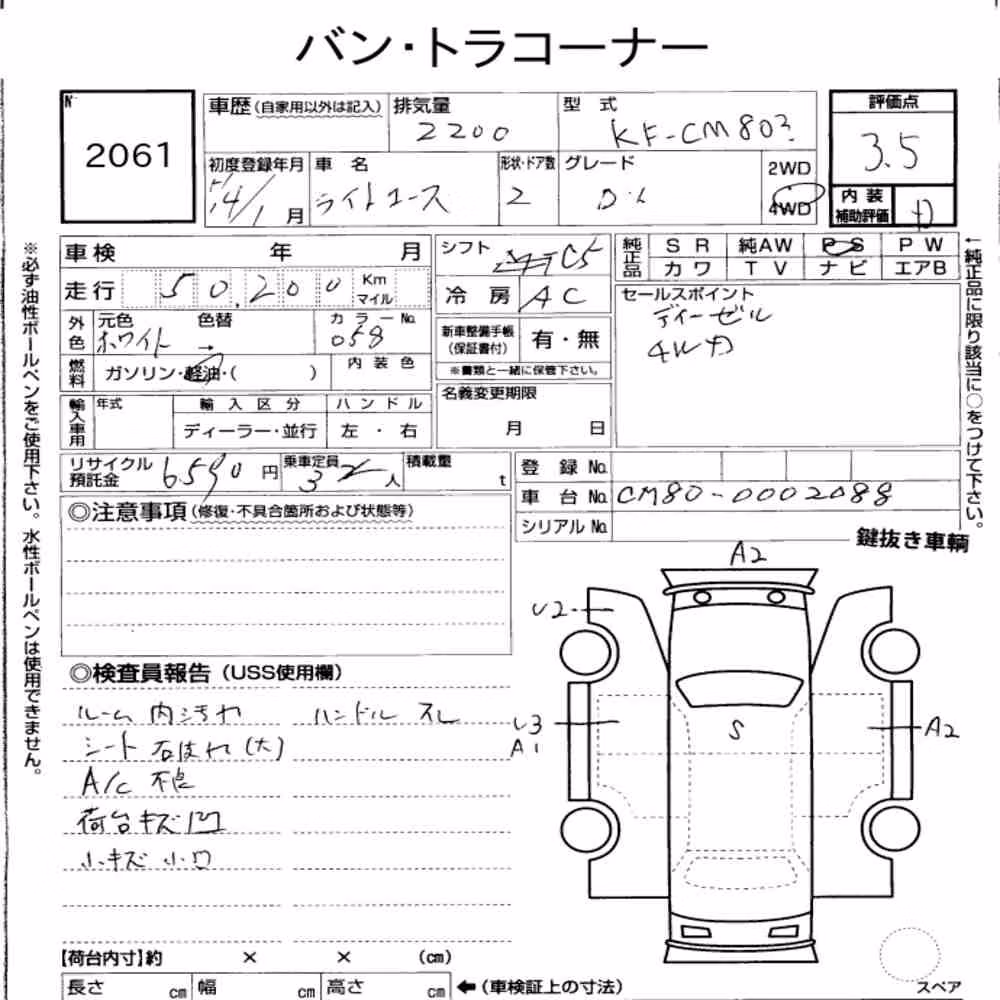 バン・トラコーナー
№
2061
車歴(自家用以外は記入)
排気量
2200
型 式
KF-CM80
評価点
3.5
初度登録年月
14/1月
車 名
ライトエース
形状・ドア数
2
グレード
2WD
4WD
内装
補助評価
D
車検 年 月
走行 50,200 Km マイル
シフト C5
冷 房 AC
純正品
S R 純AW P S P W
カ ワ T V ナ ビ エアB
セールスポイント
ディーゼル
4WD
外色
元色 色替
ホワイト →
カラーNo.
058
新車整備手帳
(保証書付)
有・無
※書類と一緒に保管下さい。
燃料
ガソリン・軽油・( )
内 装 色
輸入車用
年式
輸 入 区 分
ディーラー・並行
ハ ン ド ル
左 ・右
名義変更期限
月 日
リサイクル
預託金
6590円
乗車定員
3 人
積載量
t
登 録 No.
車 台 No. CM80-0002088
シリアル No.
◎注意事項(修復・不具合箇所および状態等)
鍵抜き車輌
※必ず油性ボールペンをご使用下さい。水性ボールペンは使用できません。
←純正品に限り該当に○をつけて下さい。
A2
U2
U3
A1
S
A2
◎検査員報告(USS使用欄)
ルーム 内 汚れ ハンドル スレ
シート 右ハ切れ(大)
A/C 不良
荷台キズ凹
小キズ 小凹
【荷台内寸】約 × × (cm)
長さ cm 幅 cm 高さ cm ←(車検証上の寸法)
スペア